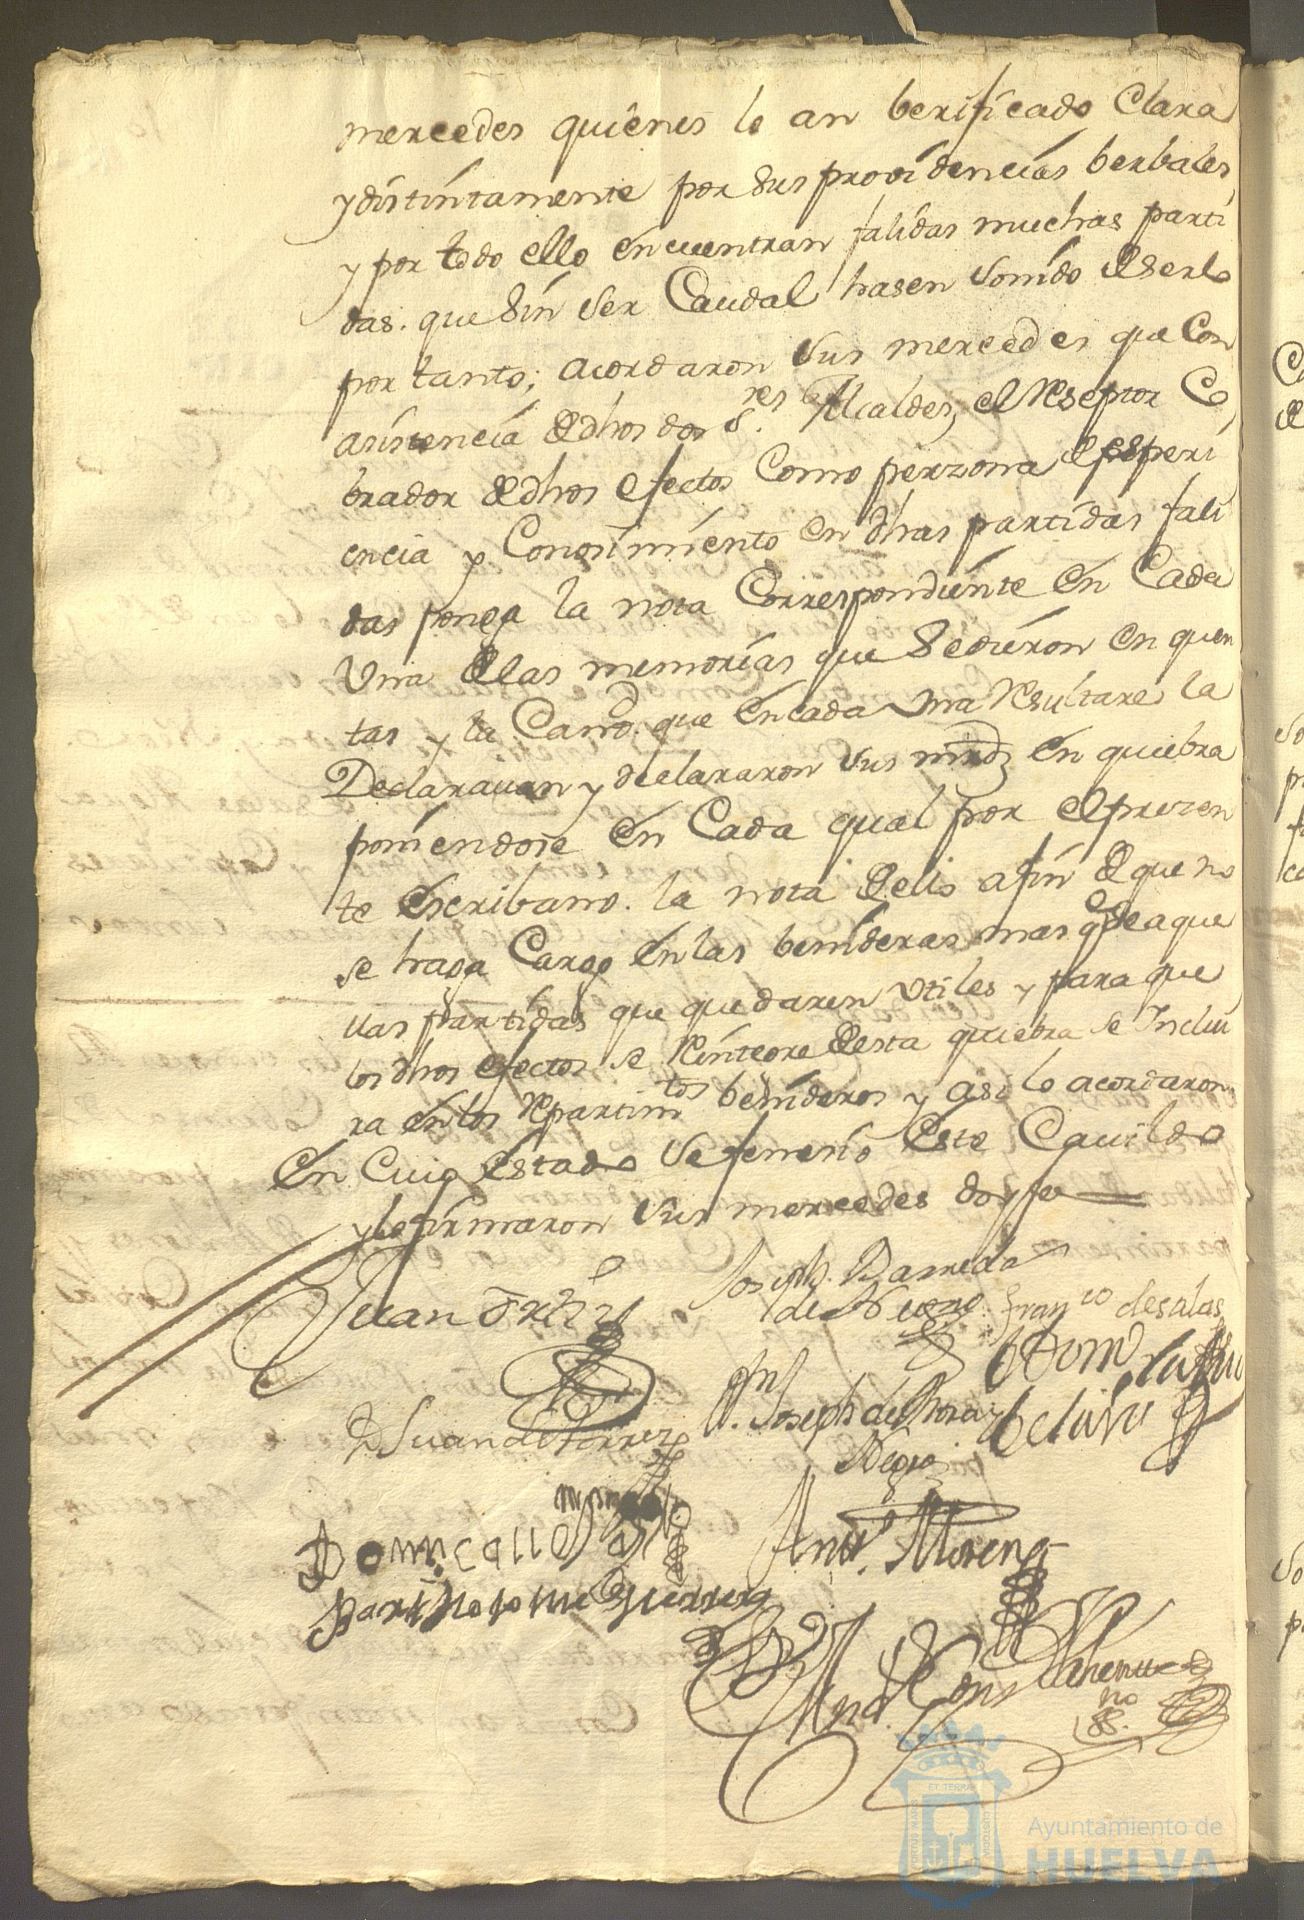 mercedes quienes lo an berificado Clara
y distintamente por sus providencias berbales
y por todo ello encuentran falidas muchas parti
das. que sin ser Caudal hasen sonido de serlo
por tanto; acordaron sus mercedes que Con
asistencia de dhos dos S.res Alcaldes, el Reseptor Co
brador de dhos efectos Como perzona de esperi
encia y Conosimiento en dhas partidas fali
das ponga la nota Correspondiente en Cada
Una de las memorias que se dieron en quen
tas y la Cantd. que en cada una Resultare la
Declarauan y declararon sus mrdz en quiebra
poniendose en Cada qual por el prezen
te escribano. la nota de ello a fin de que no
se haga Cargo en las benideras mas q. de aque
llas partidas que quedaren utiles y para que
los dhos efectos se Reintegre de esta quiebra se Inclui
ra en los Repartimtos benideros y asi lo acordaron
En Cuio estado se fenesio este Cauildo
y lo firmaron sus mercedes doy fee
Juan
Joseph. Barreda
de franco de salas
Dn Juan de torrez
Joseph de Mora y
Negro
Antt. Moreno
Bartholome Guerrero
And.
Ayuntamiento de
HUELVA